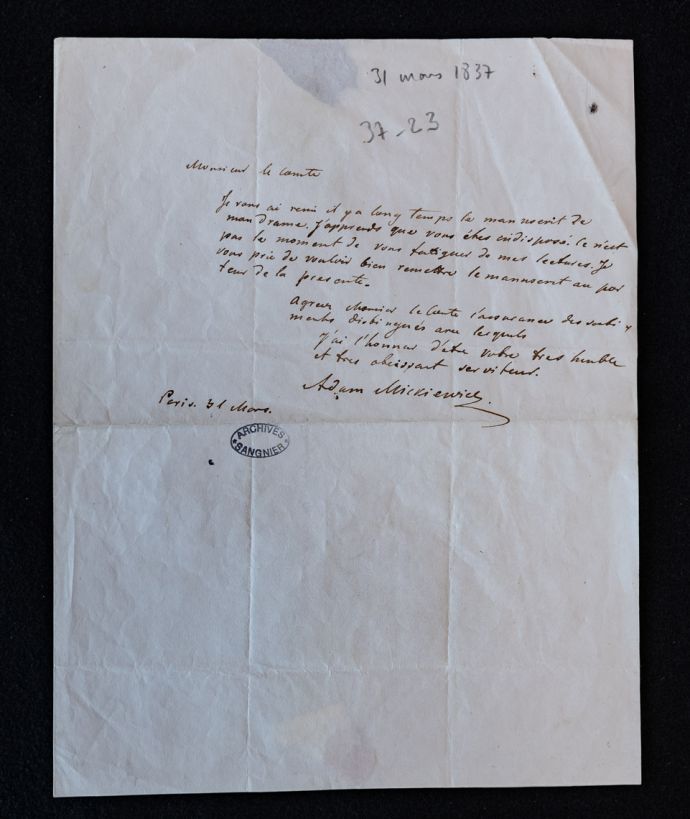 31 mars 1837
37-23
Monsieur le Comte
Je vous ai remi il y a long temps le manuscrit de
mon drame. J'apprends que vous êtes indisposé. Ce n'est
pas le moment de vous fatiguer de mes lectures. Je
vous prie de vouloir bien remettre le manuscrit au por
teur de la presente.
Agreez Monsieur le Comte l'assurance des senti-
ments distingués avec lesquels
j'ai l'honneur d'etre votre tres humble
et tres obeissant serviteur.
Adam Mickiewicz.
Paris. 31 Mars.
ARCHIVES
SANGNIER